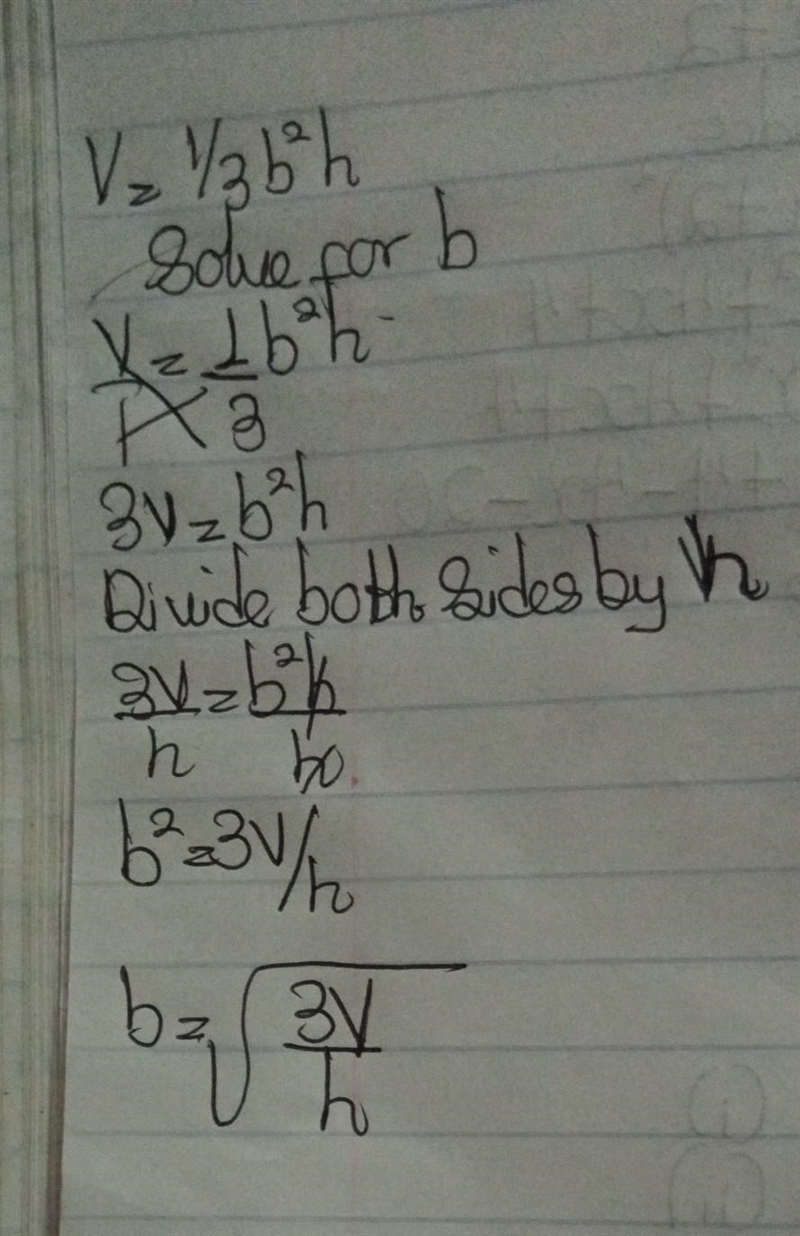 V = 1/3 b²h
Solve for b
V/1 = 1/3 b²h
3V = b²h
Divide both sides by h
3V/h = b²h/h
b² = 3V/h
b = √(3V/h)